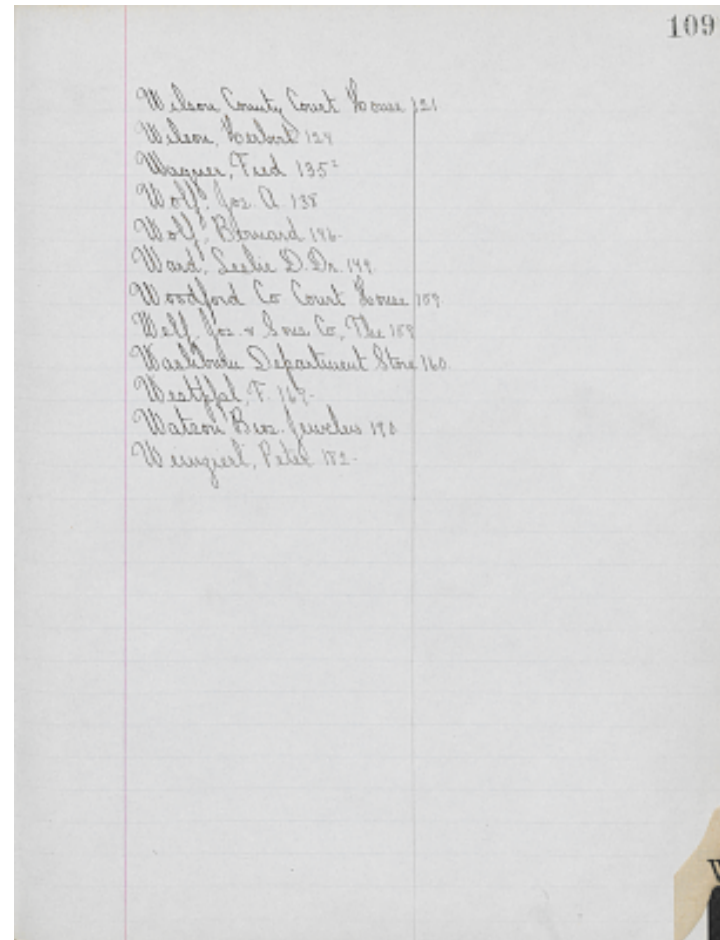 109
Wilson County Court House 121
Wilson, Herbert 129
Wagner, Fred 135²
Wolf, Jos. A. 138
Wolf, Bernard 146
Ward, Leslie D. Dr. 149
Woodford Co Court House 159
Wolf, Jos. & Sons Co, The 159
Washburn Department Store 160
Westphal, F. 169
Watson Bros. Jewelers 190
Weinzierl, Peter 182
W